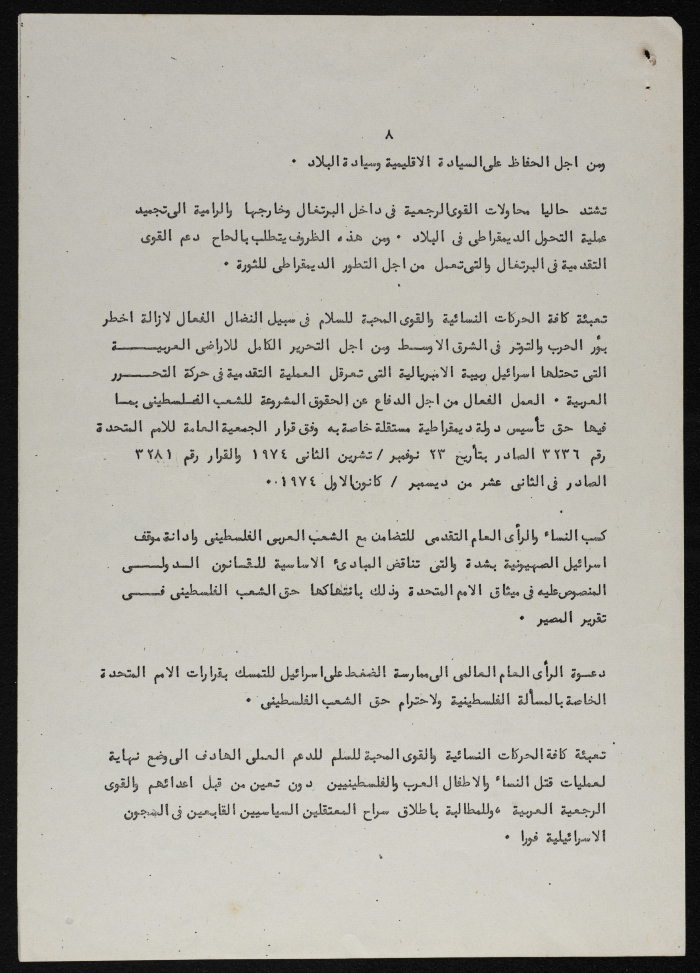 ٨
ومن اجل الحفاظ على السيادة الاقليمية وسيادة البلاد ٠
تشتد حاليا محاولات القوى الرجعية فى داخل البرتغال وخارجها والرامية الى تجميد
عملية التحول الديمقراطى فى البلاد ٠ ومن هذه الظروف يتطلب بالحاح دعم القوى
التقدمية فى البرتغال والتى تعمل من اجل التطور الديمقراطى للثورة ٠
تعبئة كافة الحركات النسائية والقوى المحبة للسلام فى سبيل النضال الفعال لازالة اخطر
بؤر الحرب والتوتر فى الشرق الاوسط ومن اجل التحرير الكامل للاراضى العربيـــــة
التى تحتلها اسرائيل ربيبة الامبريالية التى تعرقل العملية التقدمية فى حركة التحـــرر
العربية ٠ العمل الفعال من اجل الدفاع عن الحقوق المشروعة للشعب الفلسطينى بمـا
فيها حق تأسيس دولة ديمقراطية مستقلة خاصة به وفق قرار الجمعية العامة للامم المتحدة
رقم ٣٢٣٦ الصادر بتأريخ ٢٣ نوفمبر / تشرين الثانى ١٩٧٤ والقرار رقم ٣٢٨١
الصادر فى الثانى عشر من ديسمبر / كانون الاول ١٩٧٤ ٠٠
كسب النساء والرأى العام التقدمى للتضامن مع الشعب العربى الفلسطينى وادانة موقف
اسرائيل الصهيونية بشدة والتى تناقض المبادئ الاساسية للقـانون الـدولـــى
المنصوص عليه فى ميثاق الامم المتحدة وذلك بانتهاكها حق الشعب الفلسطينى فـــى
تقرير المصير ٠
دعـوة الرأى العام العالمى الى ممارسة الضغط على اسرائيل للتمسك بقرارات الامم المتحدة
الخاصة بالمسألة الفلسطينية ولاحترام حق الشعب الفلسطينى ٠
تعبئة كافة الحركات النسائية والقوى المحبة للسلم للدعم العملى الهادف الى وضع نهاية
لعمليات قتل النساء والاطفال العرب والفلسطينيين دون تعين من قبل اعدائهم والقوى
الرجعية العربية ، وللمطالبة باطلاق سراح المعتقلين السياسيين القابعين فى السجون
الاسرائيلية فورا ٠